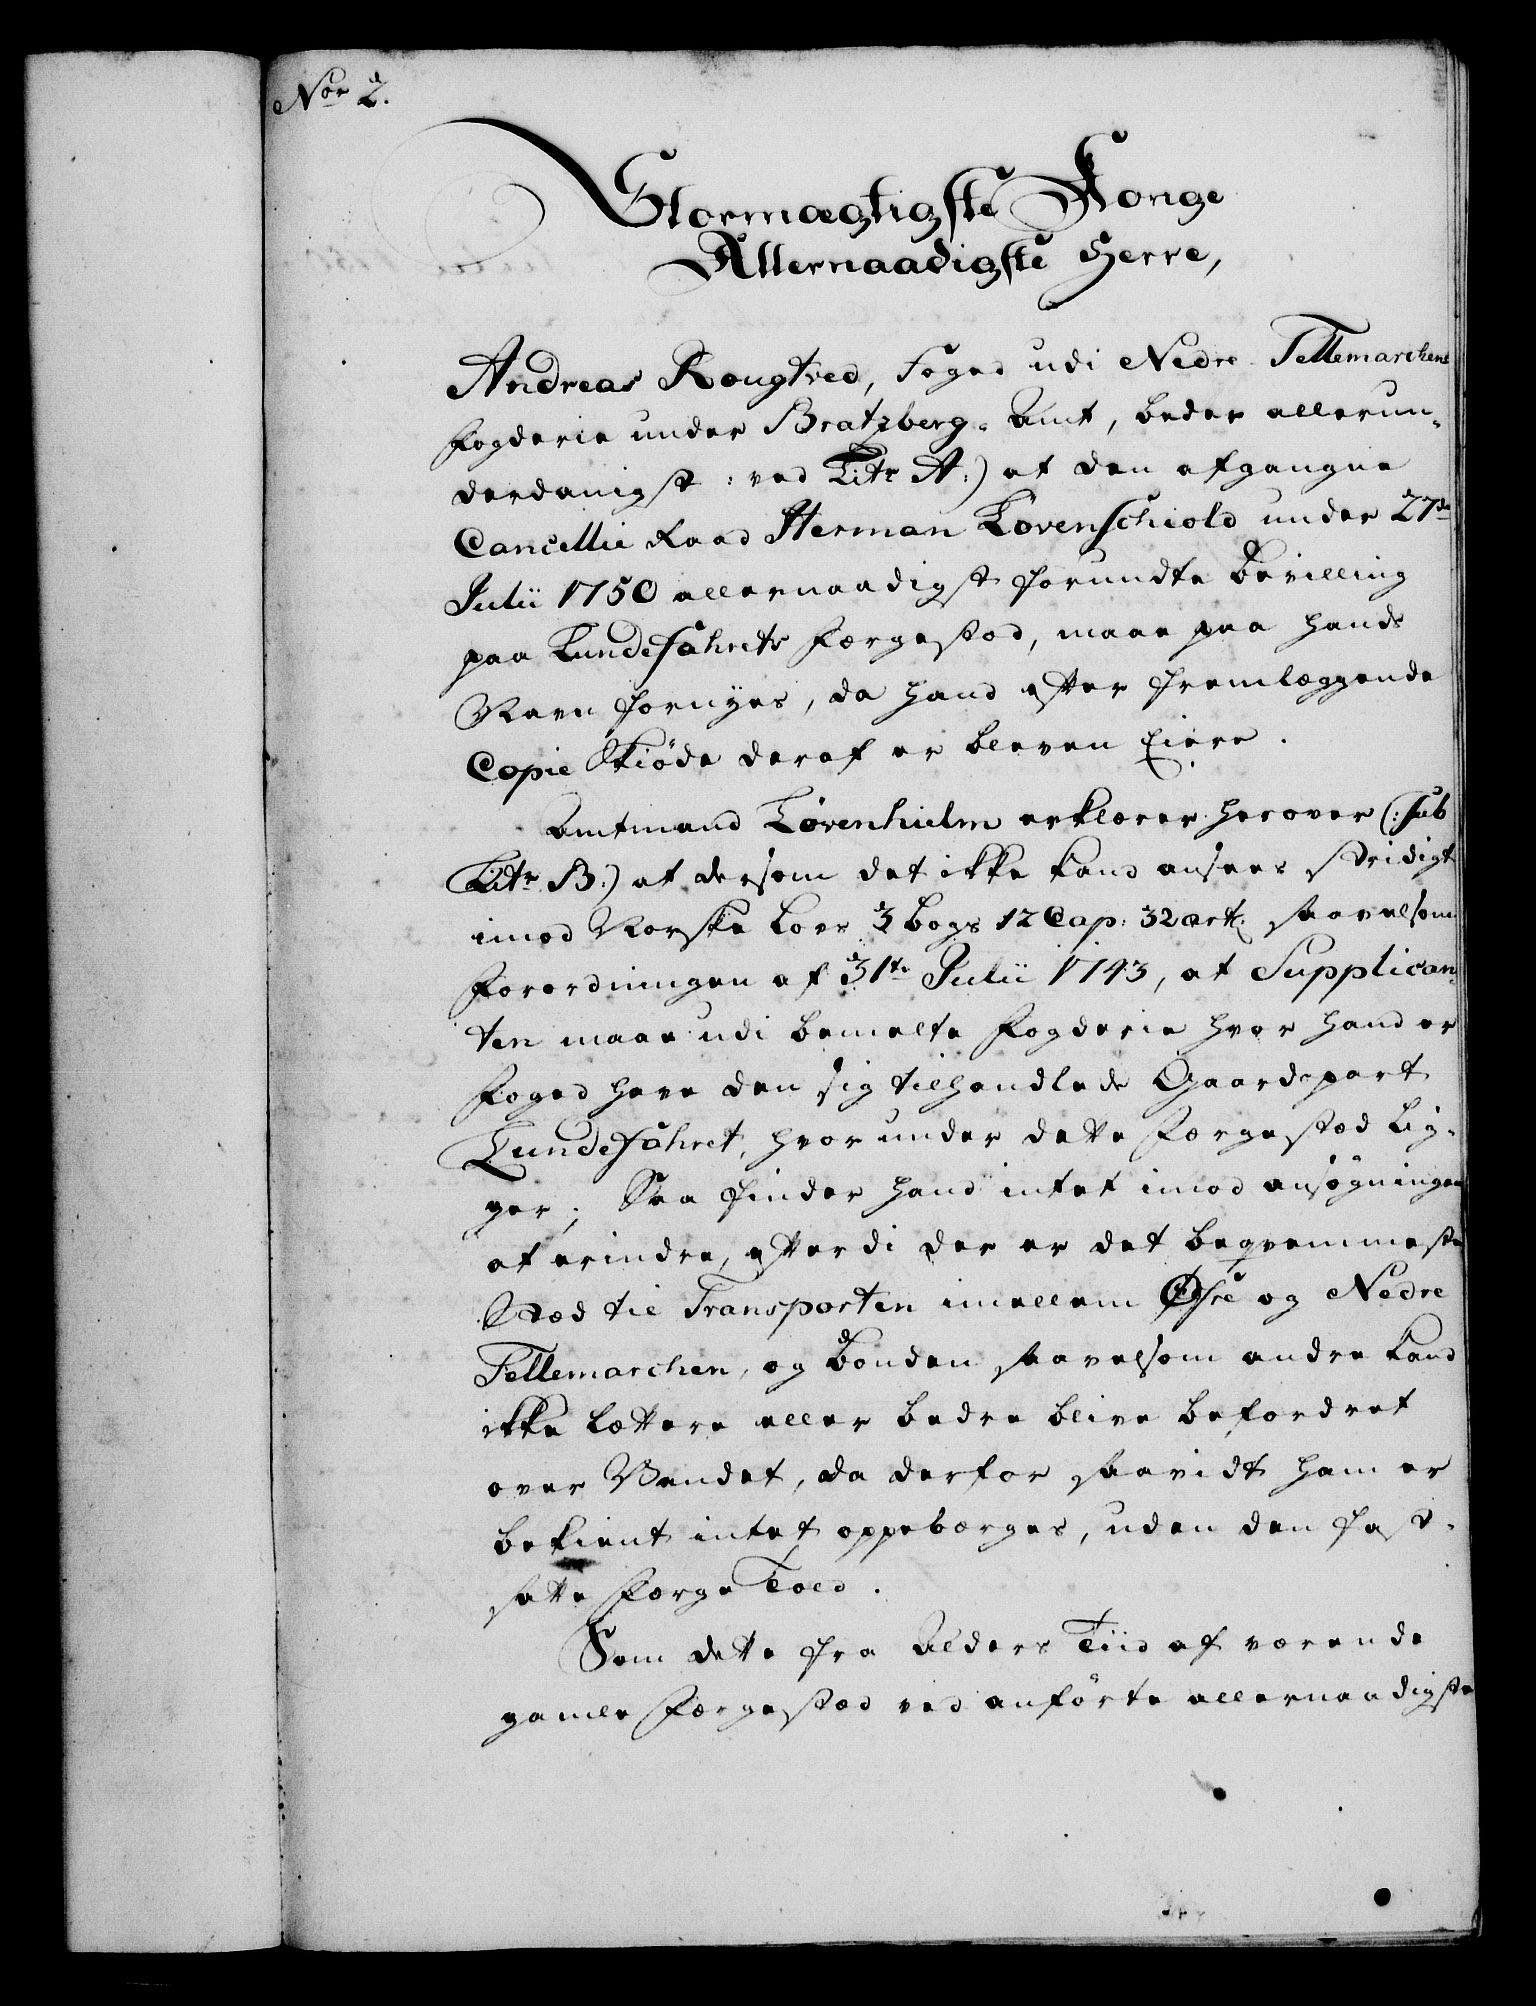 Nor 2.
Stormægtigste Konge
Allernaadigste Herre,
Andreas Rougtved, Foged udi Nedre Tellemarchens
Fogderie under Bratzberg-Amt, beder allerun-
derdanigst: ved Litr A:) at den afgangne
Cancellie Raad Herman Løvenschiold under 27de
Julii 1750 allernaadigst forundte Bevilling
paa Lundefahrets Færgestæd, maae paa hands
Navn fornyes, da hand efter fremlæggende
Copie Skiöde deraf er bleven Eiere.
Amtmand Løvenhielm erklærer herover (: sub
Litr B:) at dersom det ikke kand ansees stridigt
imod Norske Lovs 3 Bogs 12 Cap: 32 art: saavelsom
Forordningen af 31te Julii 1743, at Supplican-
ten maae udi bemelte Fogderie hvor hand er
Foged have den sig tilhandlede Gaardepart
Lundefahret, hvor under dette Færgestæd lig-
ger; Saa finder hand intet imod ansøgningen
at erindre, efterdi der er det beqvemmeste
Stæd til Transporten imellem Øfre og Nedre
Tellemarchen, og Bonden saavelsom andre kand
ikke lættere eller bedre blive befordret
over Vandet, da derfor saavidt ham er
bekient intet oppebærges, uden den fast-
satte Færge Told.
Som dette fra Alders Tiid af værende
gamle Færgestæd ved anförte allernaadigste